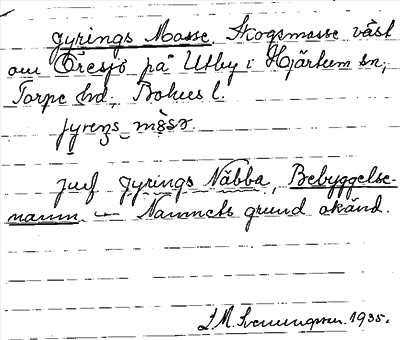 Jyrings Mosse, Skogsmosse väst
om Öresjö på Utby i Hjärtum sn,
Torpe hd, Bohus l.
jyreŋs mosə
jmf Jyrings Näbba, Bebyggelse-
namn. — Namnets grund okänd.
M. Svenungson. 1935.